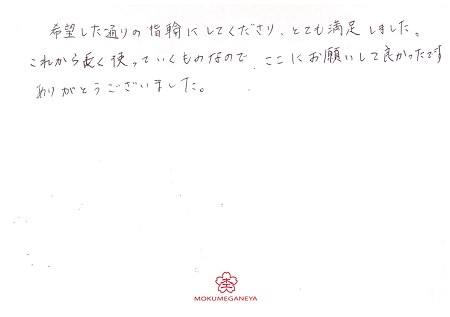 希望した通りの指輪にしてくださり、とても満足しました。
これから長く使っていくものなので、ここにお願いして良かったです
ありがとうございました。
MOKUMEGANEYA